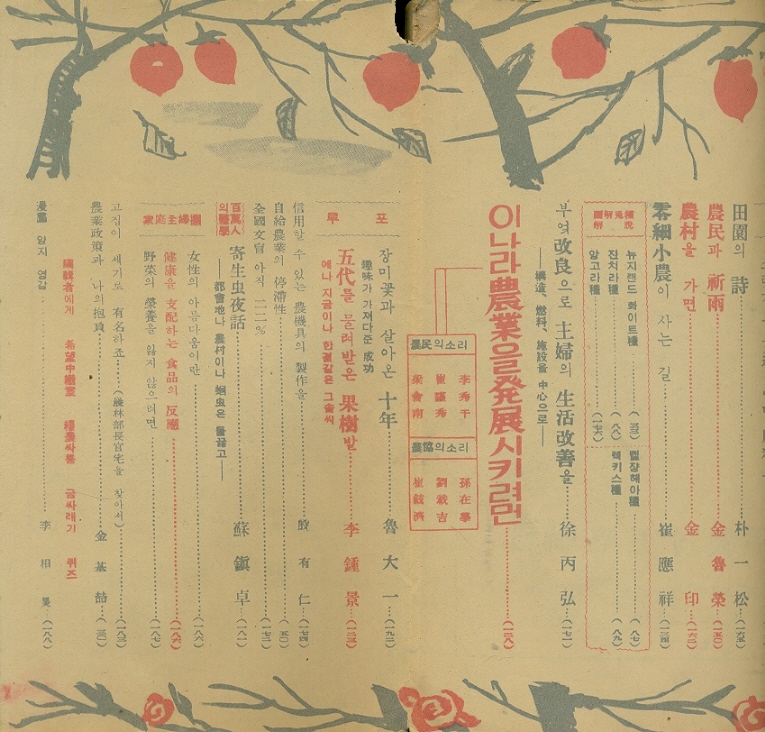 田園의 詩 朴一松
農民과 祈雨 金魯榮
農村을 가면 金印
零細小農이 사는 길 崔應祥
뉴지랜드 화이트種
친치라種
앙고라種
벨쟝헤아種
렉키스種
부엌改良으로 主婦의 生活改善을 徐丙弘
——構造、燃料、施設을 中心으로——
이나라農業을發展시키려면
農民의소리
李秀千
崔 秀
梁會南
農協의소리
孫在學
劉 吉
崔 濟
장미꽃과 살아온 十年 魯大一
趣味가 가져다준 成功
五代를 물려받은 果樹밭 李鍾景
예나 지금이나 한결같은 그솜씨
信用할수있는 農機具의 製作을 有仁
自給農業의 停滯性
全國文盲 아직 二二%
百萬人의醫學
寄生虫夜話 蘇鎭卓
——都會地나 農村이나 蛔虫은 들끓고——
女性의 아름다움이란
健康을 支配하는 食品의 反應
野菜의 營養을 잃지 않으려면
고집이 세기로 有名하죠 (農林部長官宅을 찾아서)
農業政策과 나의抱負 金基喆
漫畵 앉지 영감 李相昊